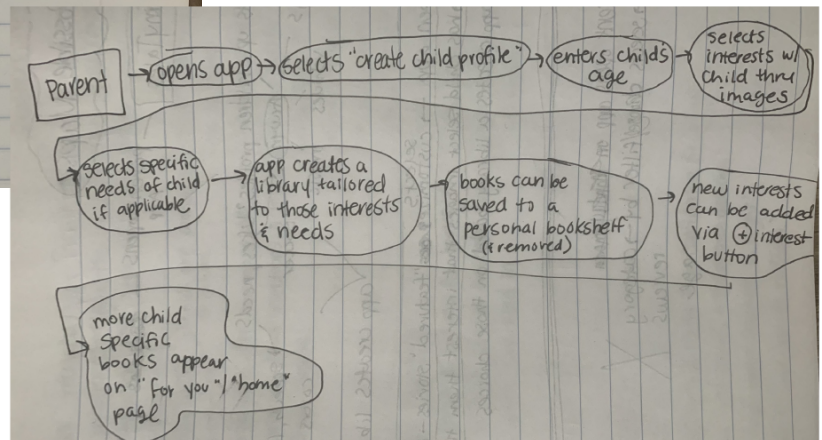 Parent
opens app
selects "create child profile"
enters child's
age
selects
interests w/
child thru
images
selects specific
needs of child
if applicable
app creates a
library tailored
to those interests
& needs
books can be
saved to a
personal bookshelf
(& removed)
new interests
can be added
via + interest
button
more child
specific
books appear
on "for you"/"home"
page